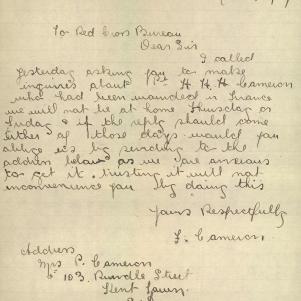 To Red Cross Bureau
Dear Sir
I called
yesterday asking you to make
inquires about Pt H H H Cameron
who had been wounded in France
we will not be at home Thursday or
Friday & if the reply should come
either of those days would you
oblige us by sending to the
address below as we are anxious
to get it. trusting it will not
inconvenience you by doing this
Yours Respectfully
F. Cameron.
Address
Mrs P. Cameron
103. Rundle Street
Kent Town